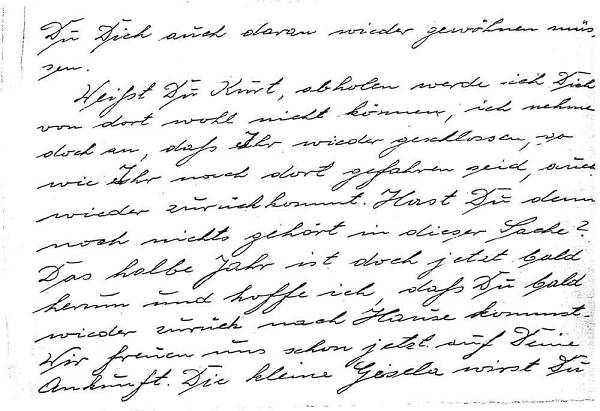 Du Dich auch daran wieder gewöhnen müs-
sen.
Weißt Du Kurt, abholen werde ich Dich
von dort wohl nicht können, ich nehme
doch an, daß Ihr wieder geschlossen, so
wie Ihr nach dort gefahren seid, auch
wieder zurückkommt. Hast Du denn
noch nichts gehört in dieser Sache?
Das halbe Jahr ist doch jetzt bald
herum und hoffe ich, daß Du bald
wieder zurück nach Hause kommst.
Wir freuen uns schon jetzt auf Deine
Ankunft. Die kleine Gisela wirst Du